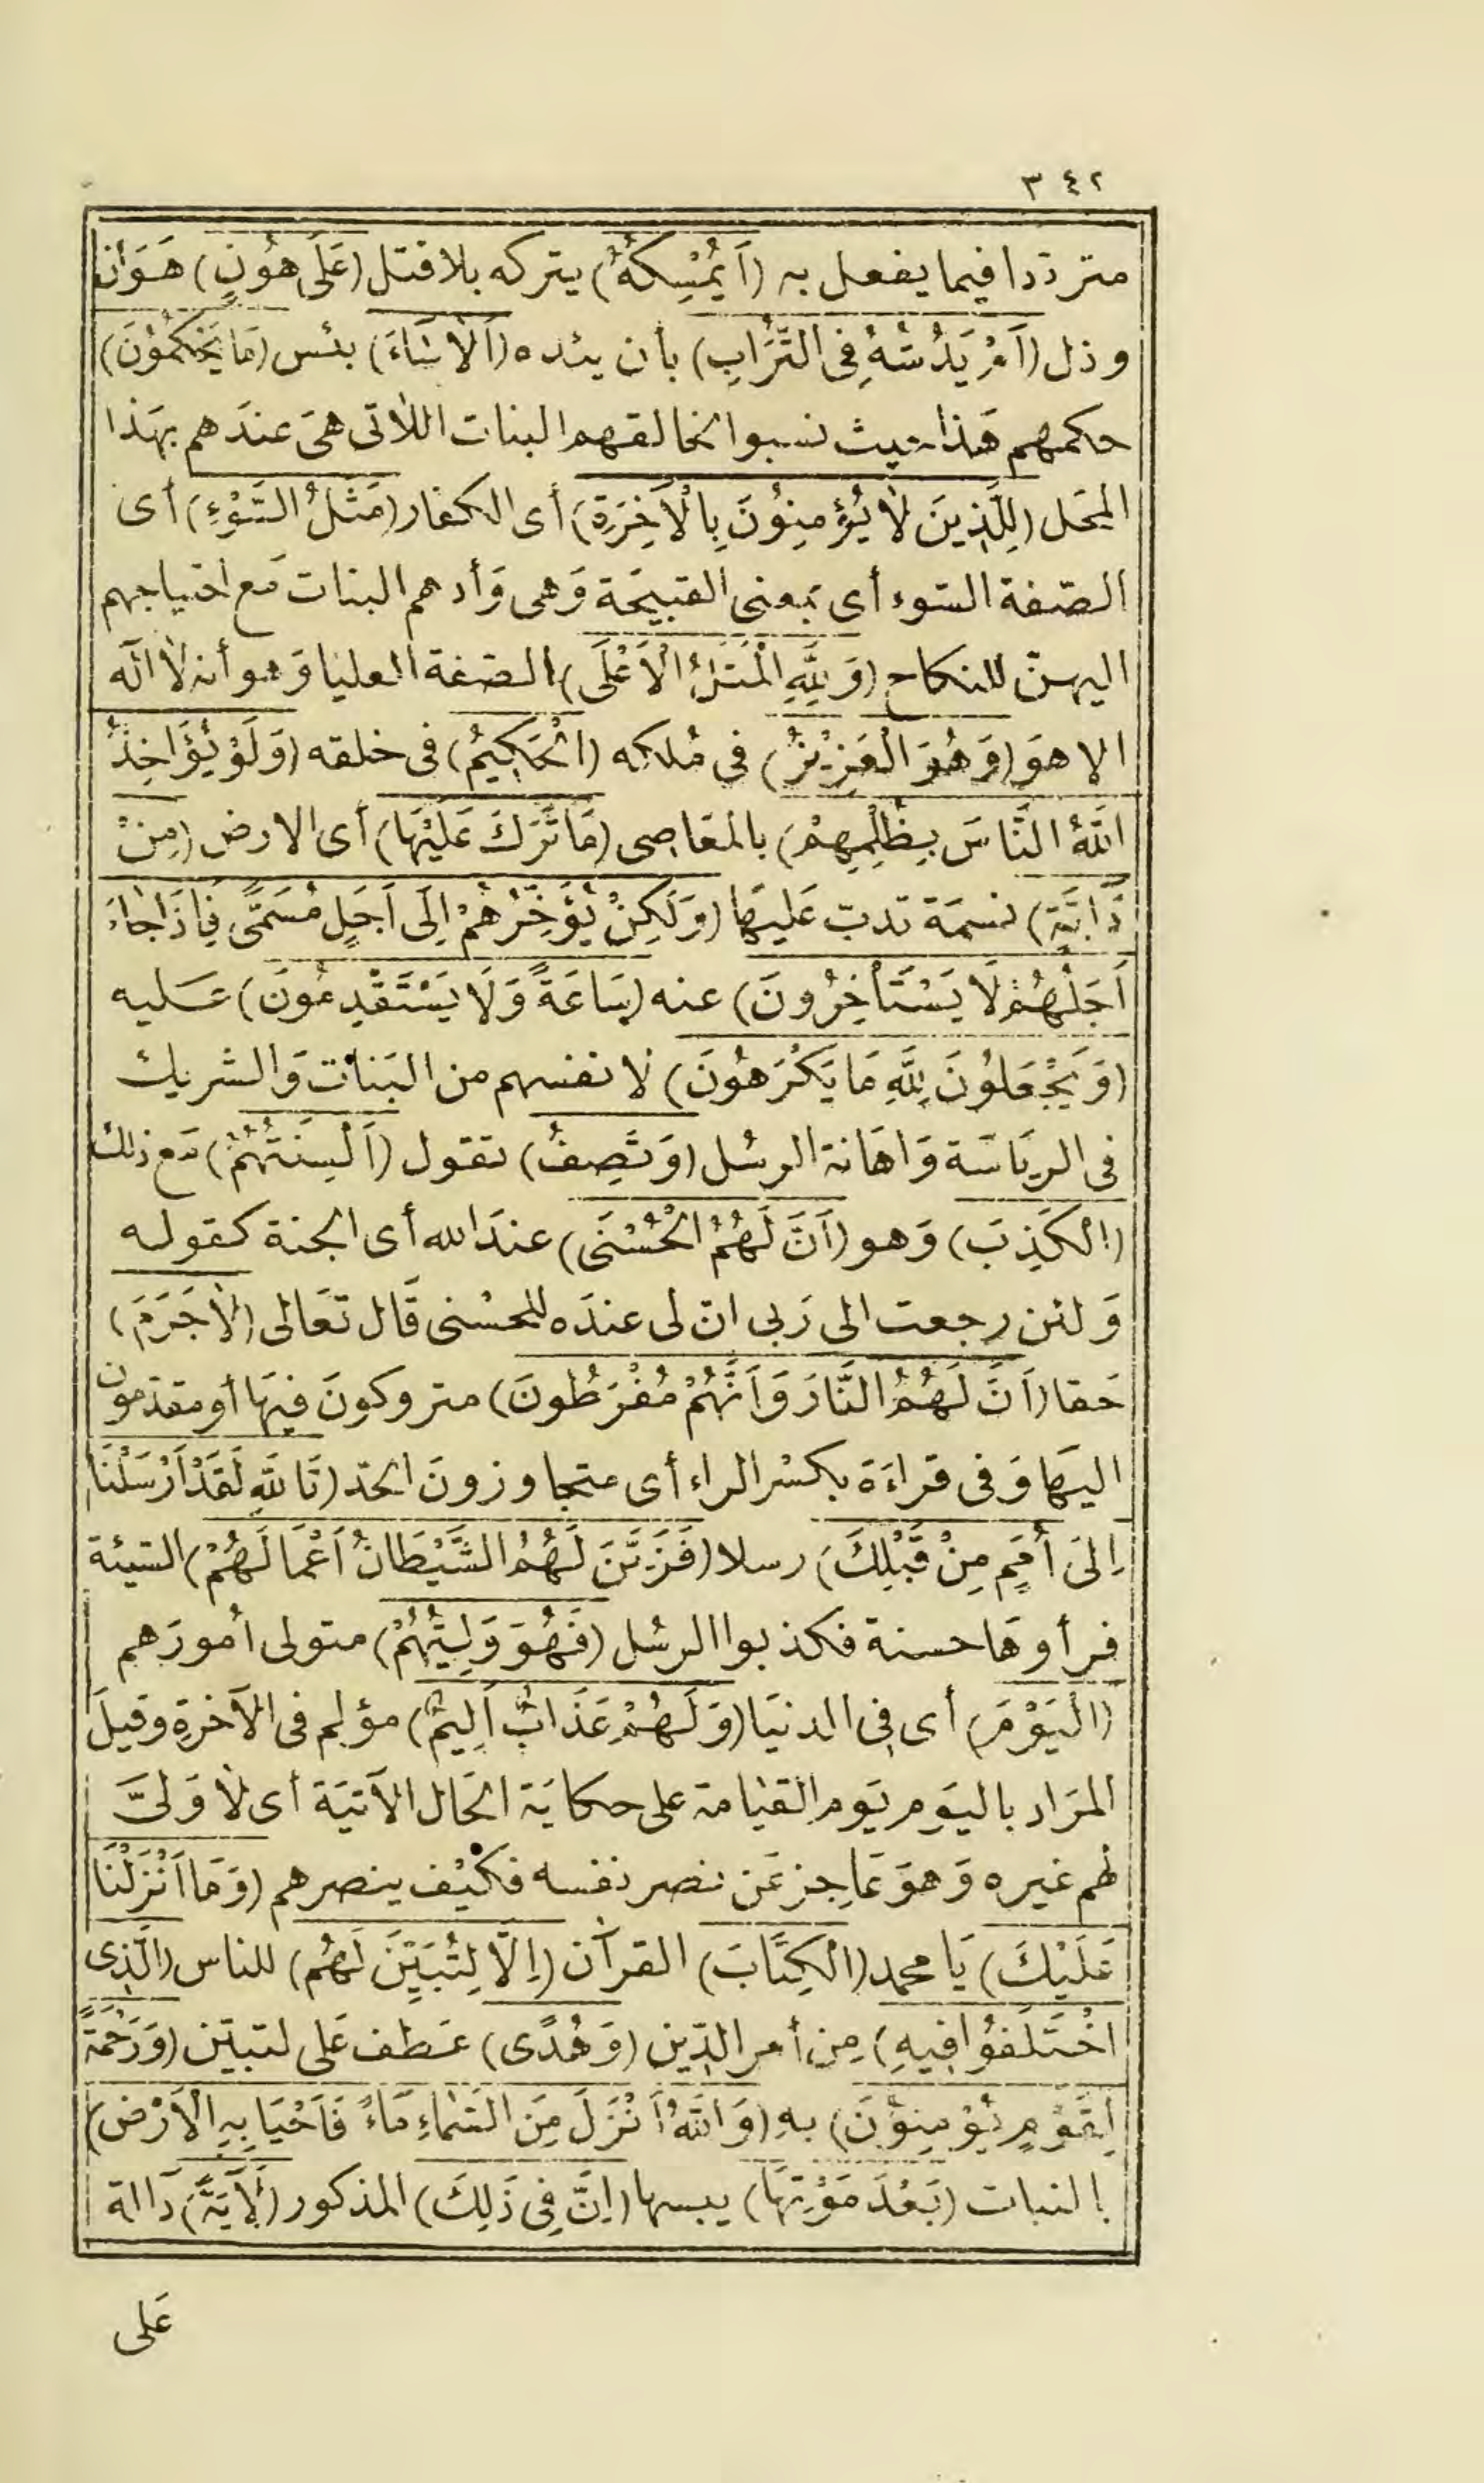 ٣٤٢
مترددا فيما يفعل به (أَيُمْسِكُهُ) يتركه بلا قتل (عَلَى هُونٍ) هَوَان
وذل (أَمْ يَدُسُّهُ فِى التُّرَابِ) بأن يئده (أَلَا سَاءَ) بئس (مَا يَحْكُمُونَ)
حكمهم هَذا حيث نسبوا لخالقهم البنات اللاتى هىَ عندَهم بهَذا
المحَل (لِلَّذِينَ لَا يُؤْمِنُونَ بِالْآخِرَةِ) أى الكفار (مَثَلُ السَّوْءِ) أى
الصّفة السّوء أى بمعنى القبيحَة وَهى وَأدهم البنات مَع احتياجهم
اليهنّ للنكاح (وَلِلَّهِ الْمَثَلُ الْأَعْلَى) الصّفة العليا وَهو أنه لا اله
الا هوَ (وَهُوَ الْعَزِيزُ) فى مُلكه (الْحَكِيمُ) فى خلقه (وَلَوْ يُؤَاخِذُ
اللَّهُ النَّاسَ بِظُلْمِهِمْ) بالمعَاصى (مَا تَرَكَ عَلَيْهَا) أى الارض (مِنْ
دَابَّةٍ) نسمَة تدبّ عَليهَا (وَلَكِنْ يُؤَخِّرُهُمْ إِلَى أَجَلٍ مُسَمًّى فَإِذَا جَاءَ
أَجَلُهُمْ لَا يَسْتَأْخِرُونَ) عنه (سَاعَةً وَلَا يَسْتَقْدِمُونَ) عَليه
(وَيَجْعَلُونَ لِلَّهِ مَا يَكْرَهُونَ) لانفسهم من البَنات وَالشريك
فى الريَاسَة وَاهَانة الرسُل (وَتَصِفُ) تقول (أَلْسِنَتُهُمُ) مَع ذلك
(الْكَذِبَ) وَهو (أَنَّ لَهُمُ الْحُسْنَى) عندَ الله أى الجنة كقوله
وَلئن رجعت الى رَبى انّ لى عندَه للحسْنى قَال تعَالى (لَا جَرَمَ)
حَقا (أَنَّ لَهُمُ النَّارَ وَأَنَّهُمْ مُفْرَطُونَ) متروكونَ فيهَا أو مقدّمون
اليهَا وَفى قراءَة بكسْر الراء أى متجاوزونَ الحَدّ (تَاللَّهِ لَقَدْ أَرْسَلْنَا
إِلَى أُمَمٍ مِنْ قَبْلِكَ) رسلا (فَزَيَّنَ لَهُمُ الشَّيْطَانُ أَعْمَالَهُمْ) السّيئة
فرأوهَا حسنة فكذبوا الرسُل (فَهُوَ وَلِيُّهُمُ) متولى أمورَهم
(الْيَوْمَ) أى فى الدنيَا (وَلَهُمْ عَذَابٌ أَلِيمٌ) مؤلم فى الآخرةِ وقيلَ
المرَاد باليَومِ يَوم القيَامة على حكايَة الحَال الآتيَة أى لَا وَلىَّ
لهم غيره وَهوَ عَاجز عَن نصر نفسه فكيْف ينصرهم (وَمَا أَنْزَلْنَا
عَلَيْكَ) يَا محمد (الْكِتَابَ) القرآن (إِلَّا لِتُبَيِّنَ لَهُمُ) للناس (الَّذِى
اخْتَلَفُوا فِيهِ) مِن أمر الدّين (وَهُدًى) عَطف عَلى لتبيّن (وَرَحْمَةً
لِقَوْمٍ يُؤْمِنُونَ) بهِ (وَاللَّهُ أَنْزَلَ مِنَ السَّمَاءِ مَاءً فَأَحْيَا بِهِ الْأَرْضَ)
بالنبات (بَعْدَ مَوْتِهَا) يبسها (إِنَّ فِى ذَلِكَ) المذكور (لَآيَةً) دَالة
عَلى